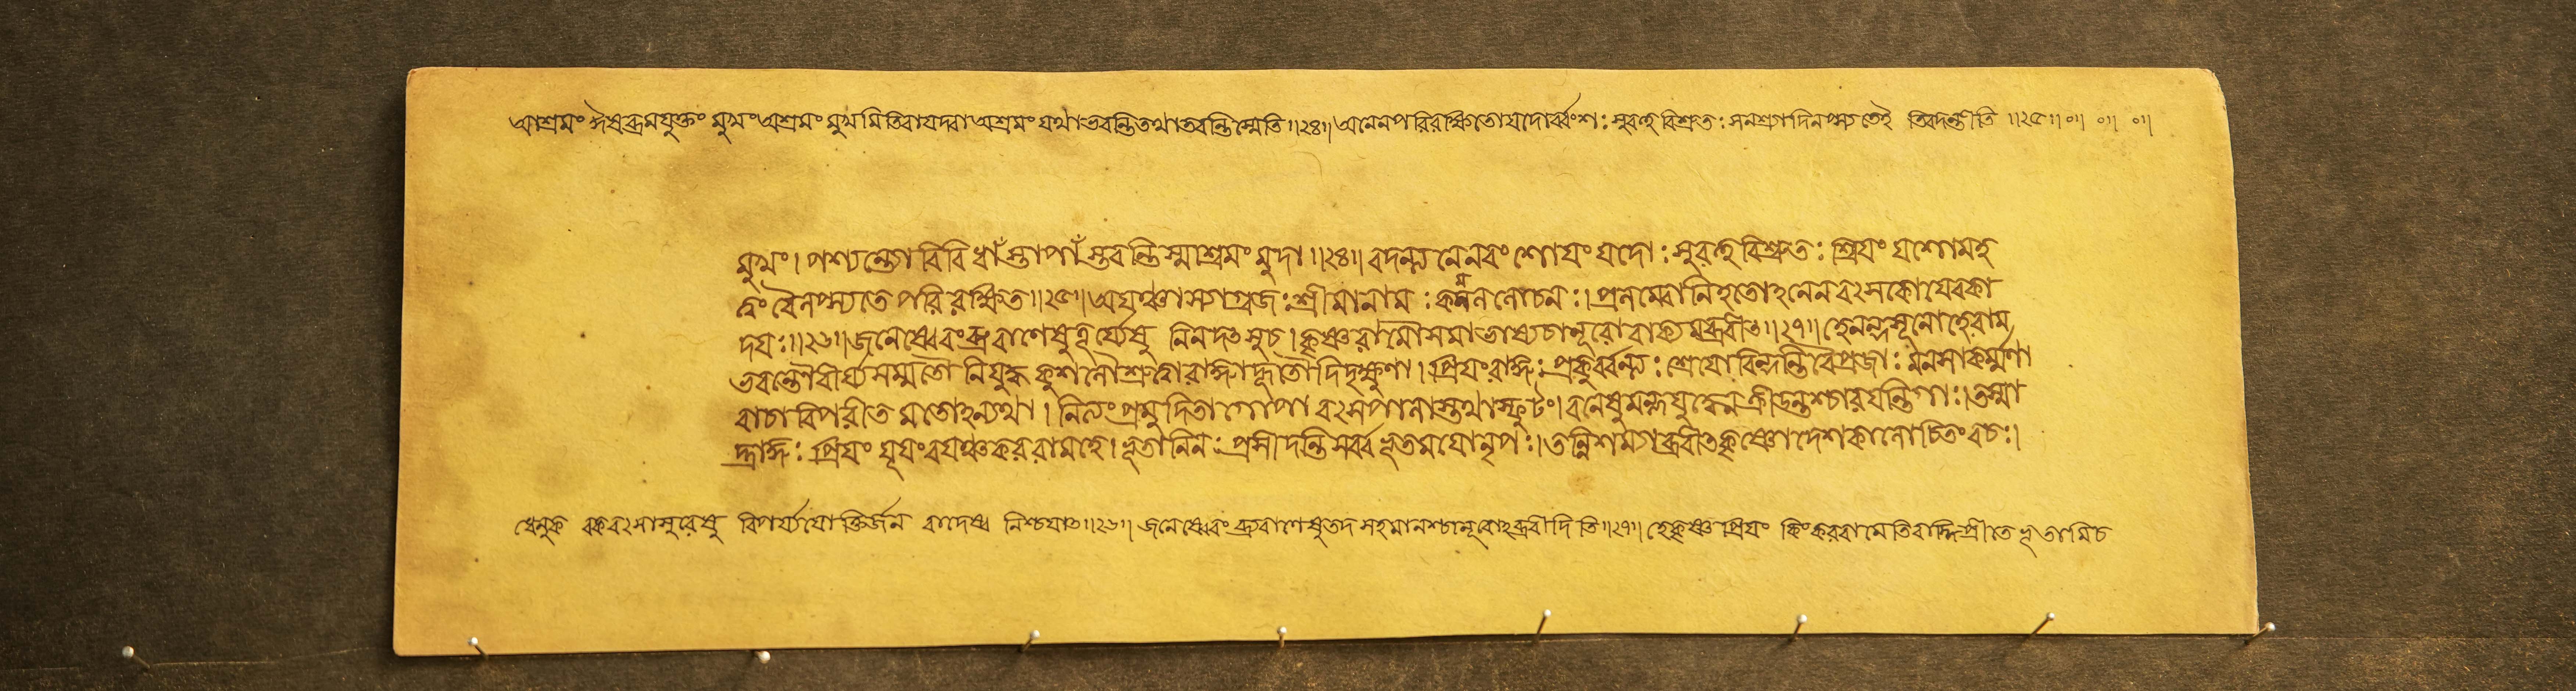 আশ্রমং ঈষচ্ছ্রমযুক্তং মুখং অশ্রমং মুখমিতি বা যদ্বা অশ্রমং যথা ভবন্তি তথা তবন্তি স্মেতি॥২৪॥ অনেন পরিরক্ষিতো যদোর্ব্বংশঃ সুবহু বিশ্রুতঃ সন শ্রিয়াদি লপ্স্যতেই তি বদন্তীতি ॥২৫॥ ০॥ ০॥ ০॥
মুখং। পশ্যন্ত্যো বিবিধাঁস্তাপাঁস্তবন্তিস্মাশ্রমং মুদা॥২৪॥ বদন্ত্যনেনবংশোযং যদোঃ সুবহুবিশ্রুতঃ শ্রিযং যশোমহ
ত্বং বৈলপ্স্যতে পরিরক্ষিত॥২৫॥ অযঞ্চাস্যাগ্রজঃ শ্রীমানামঃ কমললোচনঃ। প্রলম্বোনিহতোঽনেনবৎসকোযেবকা
দযঃ॥২৬॥ জনেষ্বেবংব্রুবাণেষুতূর্য্যেষু নিনদৎসুচ। কৃষ্ণরামৌসমাভাষ্যচানূরোবাক্যমব্রবীৎ॥২৭॥ হেনন্দসূনোহেরাম
ভবন্তৌবীর্য্যসম্মতৌ নিযুদ্ধকুশলৌশ্রুত্বারাজ্ঞাদ্দূতৌদিদৃক্ষুণা। প্রিযংরাজ্ঞঃ প্রকুর্ব্বন্ত্যঃ শ্রেযোবিন্দন্তিবৈপ্রজাঃ মনসাকর্ম্মণা
বাচাবিপরীত মতোঽন্যথা। নিত্যংপ্রমুদিতাগোপা বৎসপালাস্তথাস্ফুটং। বনেষুমল্লযুদ্ধেন ক্রীডন্তশ্চারযন্তিগাঃ। তস্মা
দ্রাজ্ঞঃ প্রিযং যূযংবযঞ্চকরবামহে। ভূতানিনঃ প্রসীদন্তিসর্ব্বভূতমযোনৃপঃ। তন্নিশম্যাব্রবীৎকৃষ্ণোদেশকালোচিতংবচঃ।
ধেনুক বকবৎসাসুরেষু বিপর্য্যযোক্তির্জন বাদেষ্ব নিশ্চযাৎ॥২৬॥ জনেষ্বেবং ব্রুবাণেষু তদসহমানশ্চানূরোঽব্রবীদিতি॥২৭॥ হেকৃষ্ণ প্রিযং কিংকরবামেতি ভূতানিচ